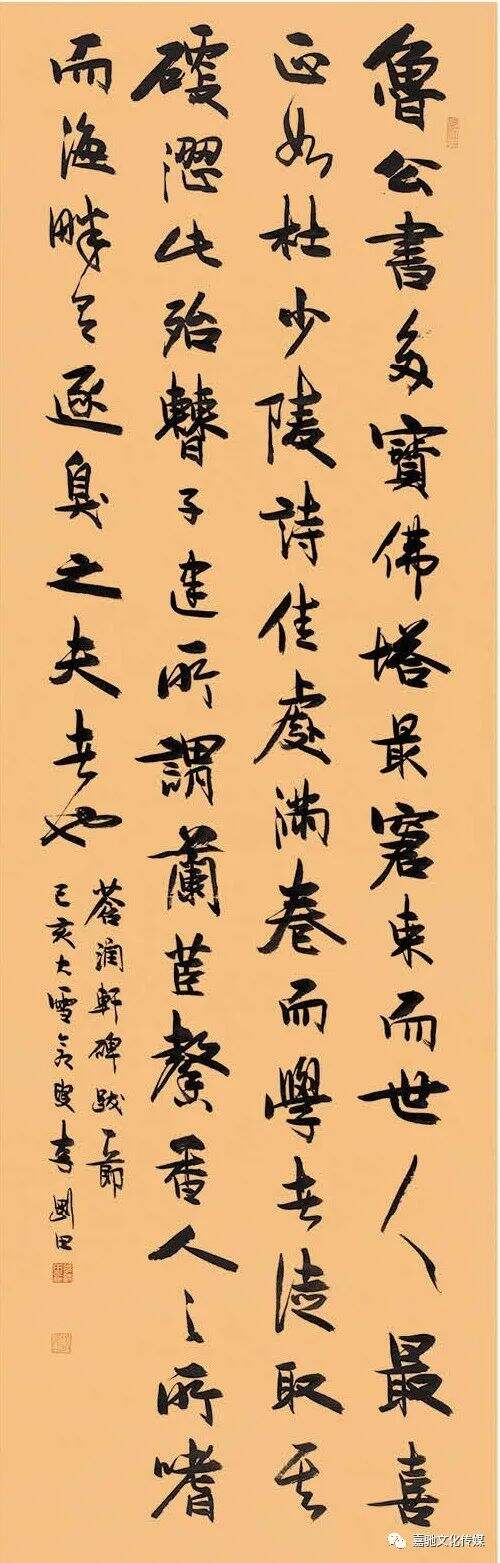 魯公書多寶佛塔最窘束而世人最喜
正如杜少陵詩佳處滿卷而學者徒取其
澀此殆子建所謂蘭茞馨香人々所嗜
而海畔有逐臭之夫者也
蒼潤軒碑跋一節
己亥大雪叟李剛田
嘉驰文化传媒